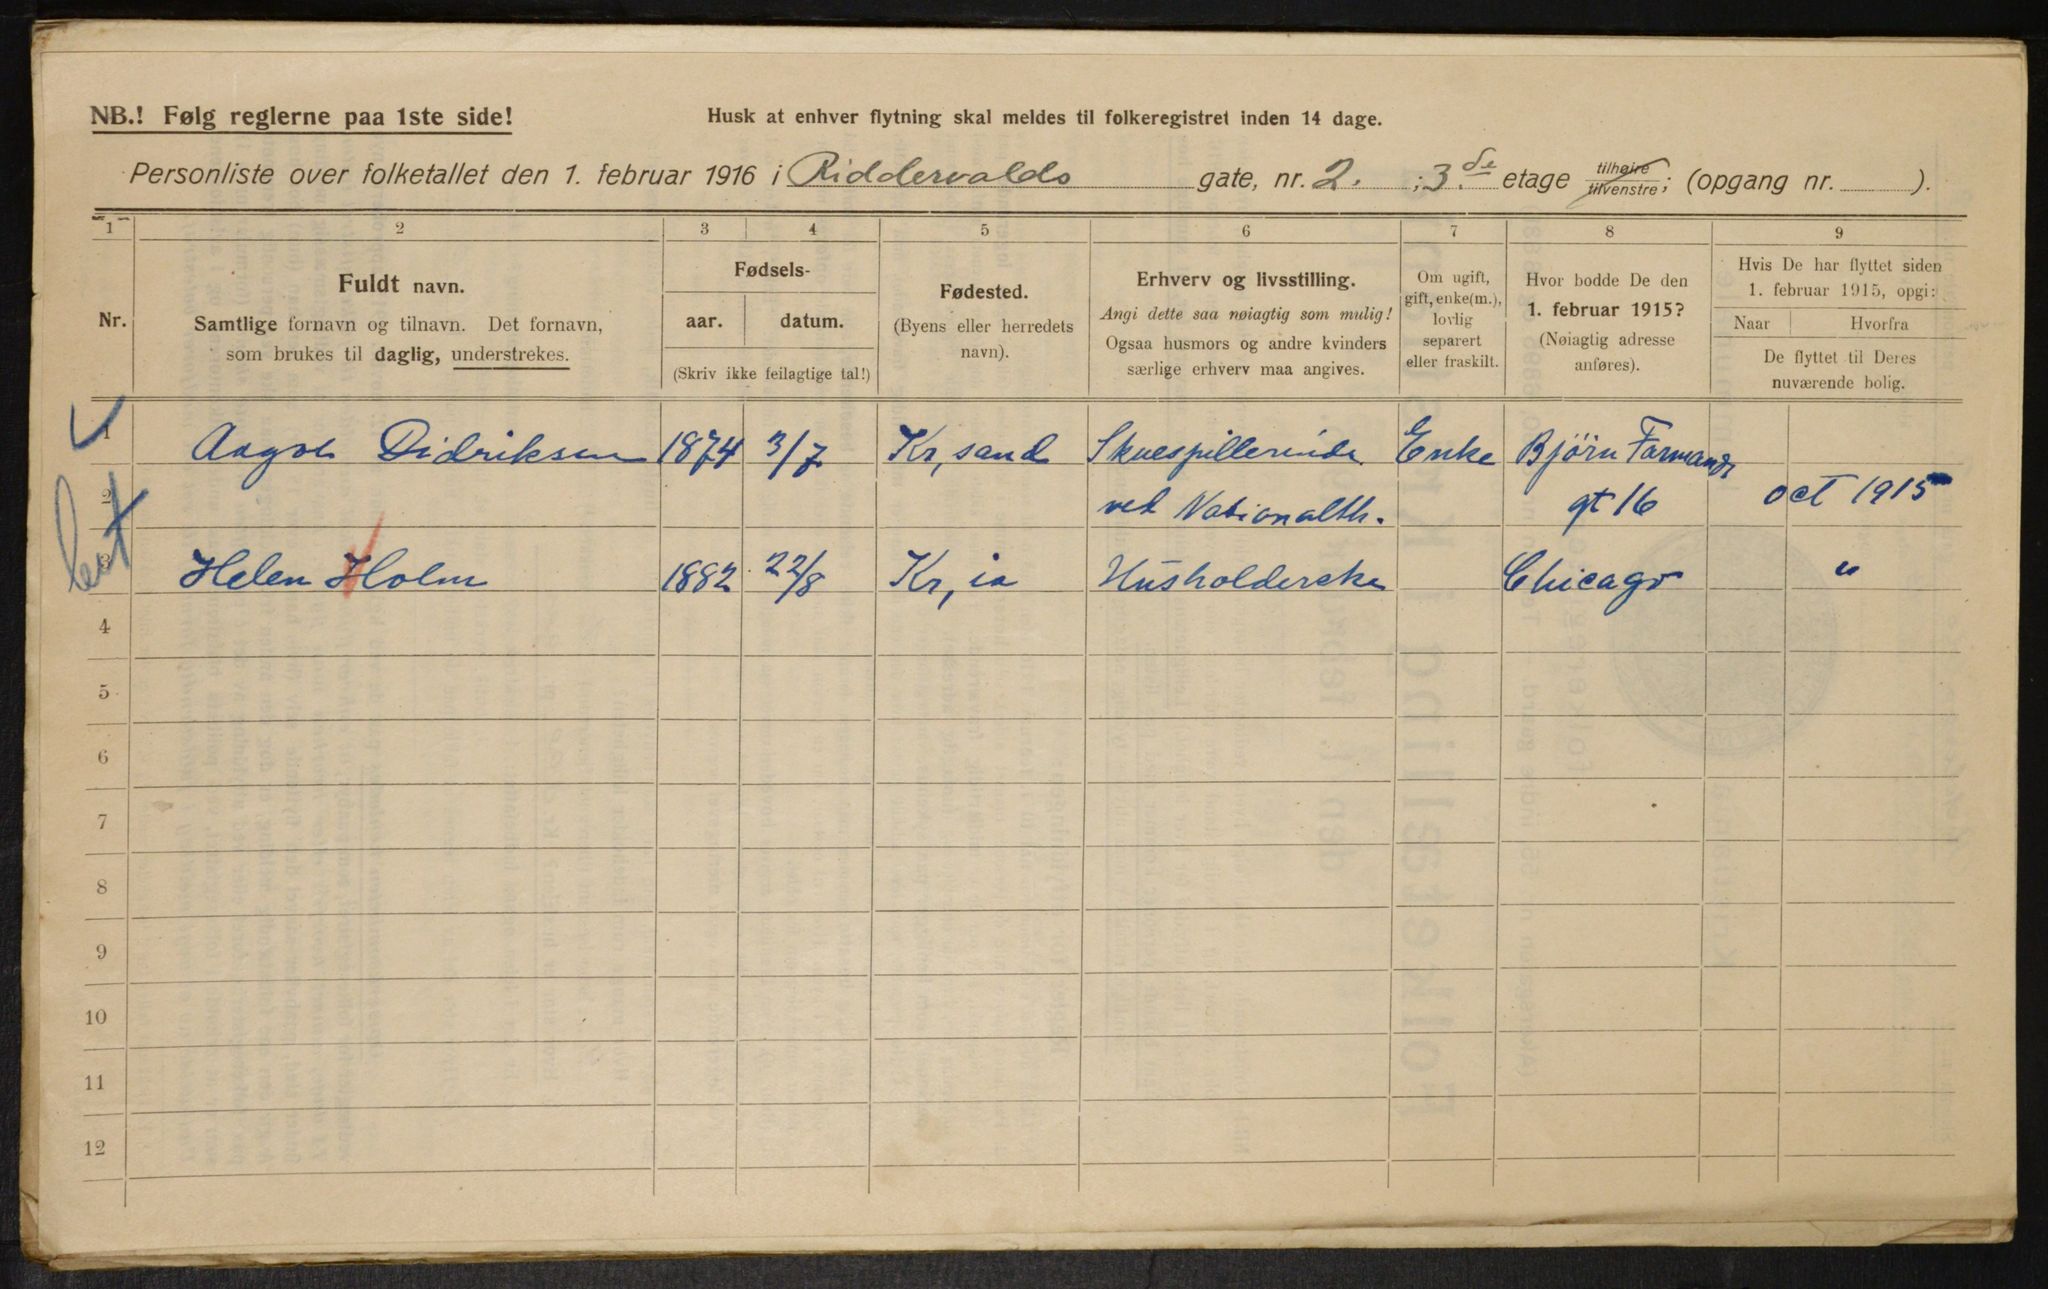 NB.! Følg reglerne paa 1ste side!
Husk at enhver flytning skal meldes til folkeregistret inden 14 dage.
Personliste over folketallet den 1. februar 1916 i Riddervolds gate, nr. 2. ; 3.de etage tilhøire/tilvenstre; (opgang nr. ).
1 2 3 4 5 6 7 8 9
Nr.
Fuldt navn.
Samtlige fornavn og tilnavn. Det fornavn,
som brukes til daglig, understrekes.
Fødsels-
aar. datum.
(Skriv ikke feilagtige tal!)
Fødested.
(Byens eller herredets
navn).
Erhverv og livsstilling.
Angi dette saa nøiagtig som mulig!
Ogsaa husmors og andre kvinders
særlige erhverv maa angives.
Om ugift,
gift, enke(m.),
lovlig
separert
eller fraskilt.
Hvor bodde De den
1. februar 1915?
(Nøiagtig adresse
anføres).
Hvis De har flyttet siden
1. februar 1915, opgi:
Naar Hvorfra
De flyttet til Deres
nuværende bolig.
1 Aagot Didriksen 1874 3/7 Kr,sand Skuespillerinde Enke Björn Farmands
2 ved Nationalth. gt 16 oct 1915
3 Helen Holm 1882 22/8 Kr,ia Husholderske Chicago "
4
5
6
7
8
9
10
11
12